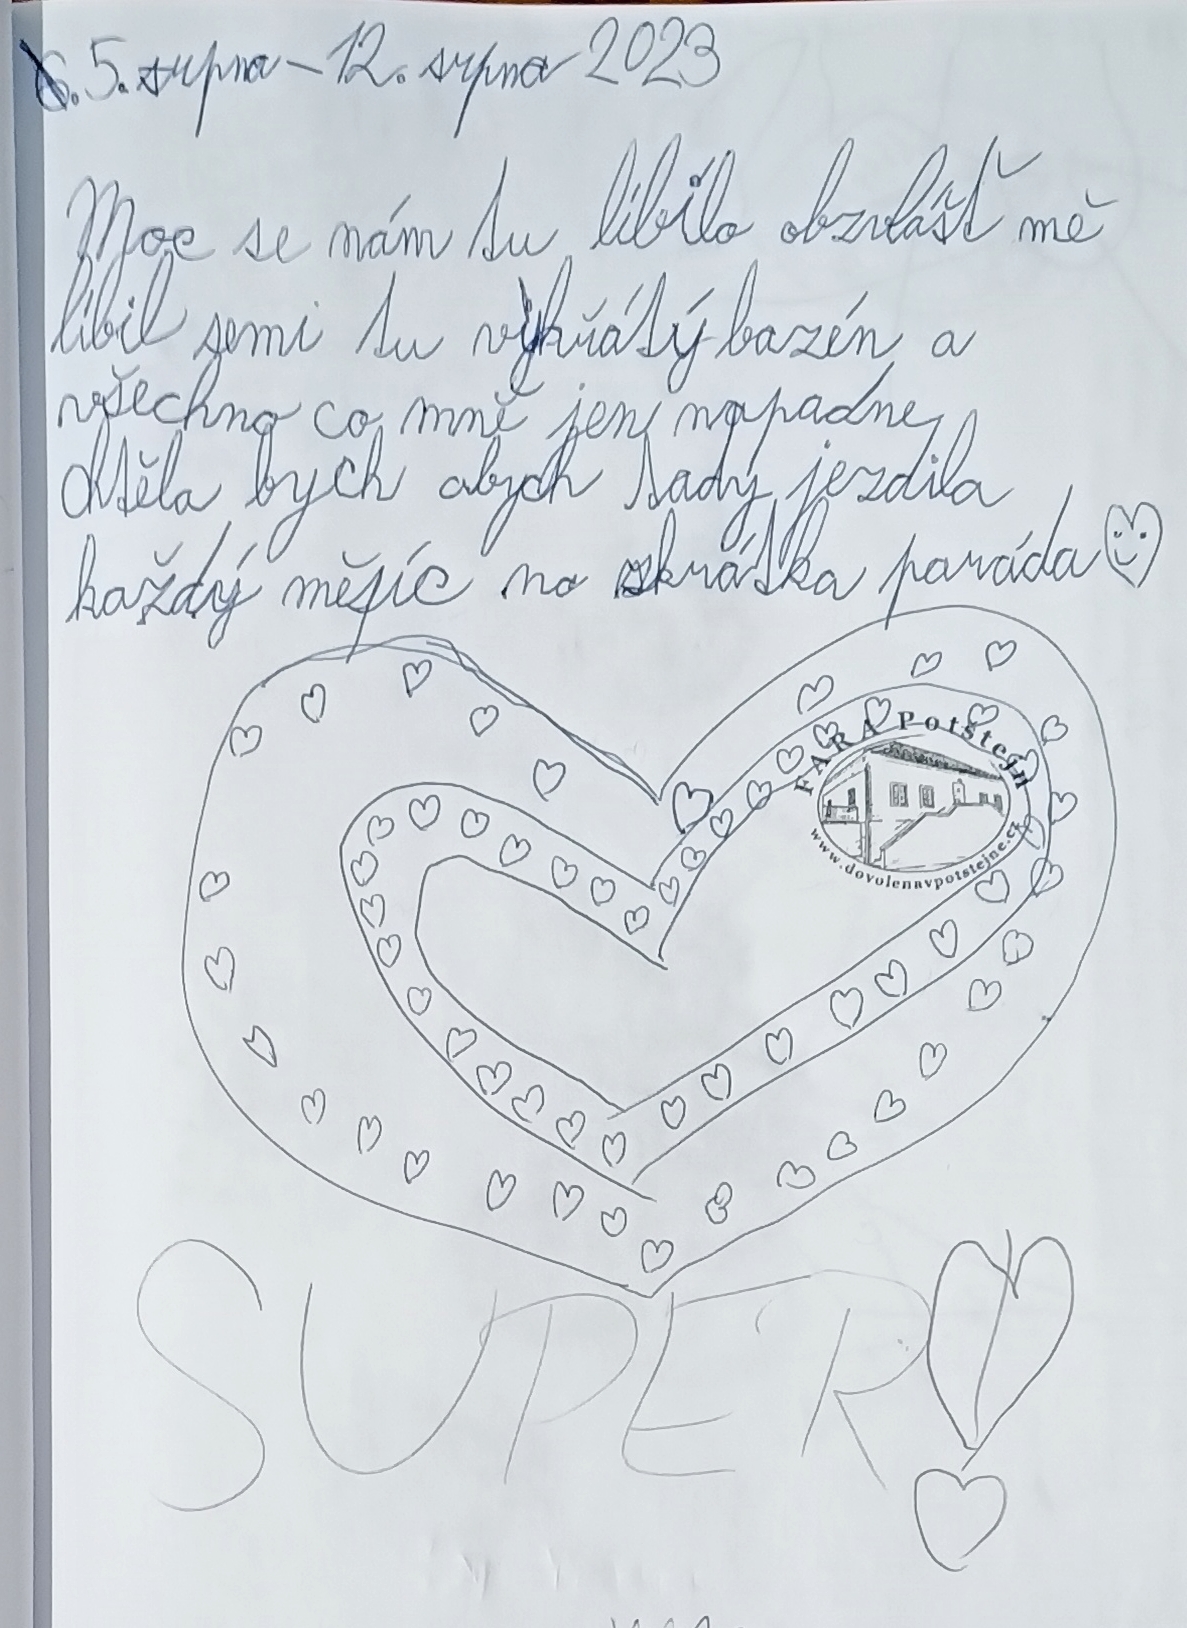 5. srpna – 12. srpna 2023
Moc se nám tu líbilo obzvlášť mě
líbil semi tu vykřátý bazén a
všechno co mně jen napadne,
chtěla bych abych tady jezdila
každý měsíc no skrátka paráda
FARA Potštejn
www.dovolenavpotstejne.cz
SUPER